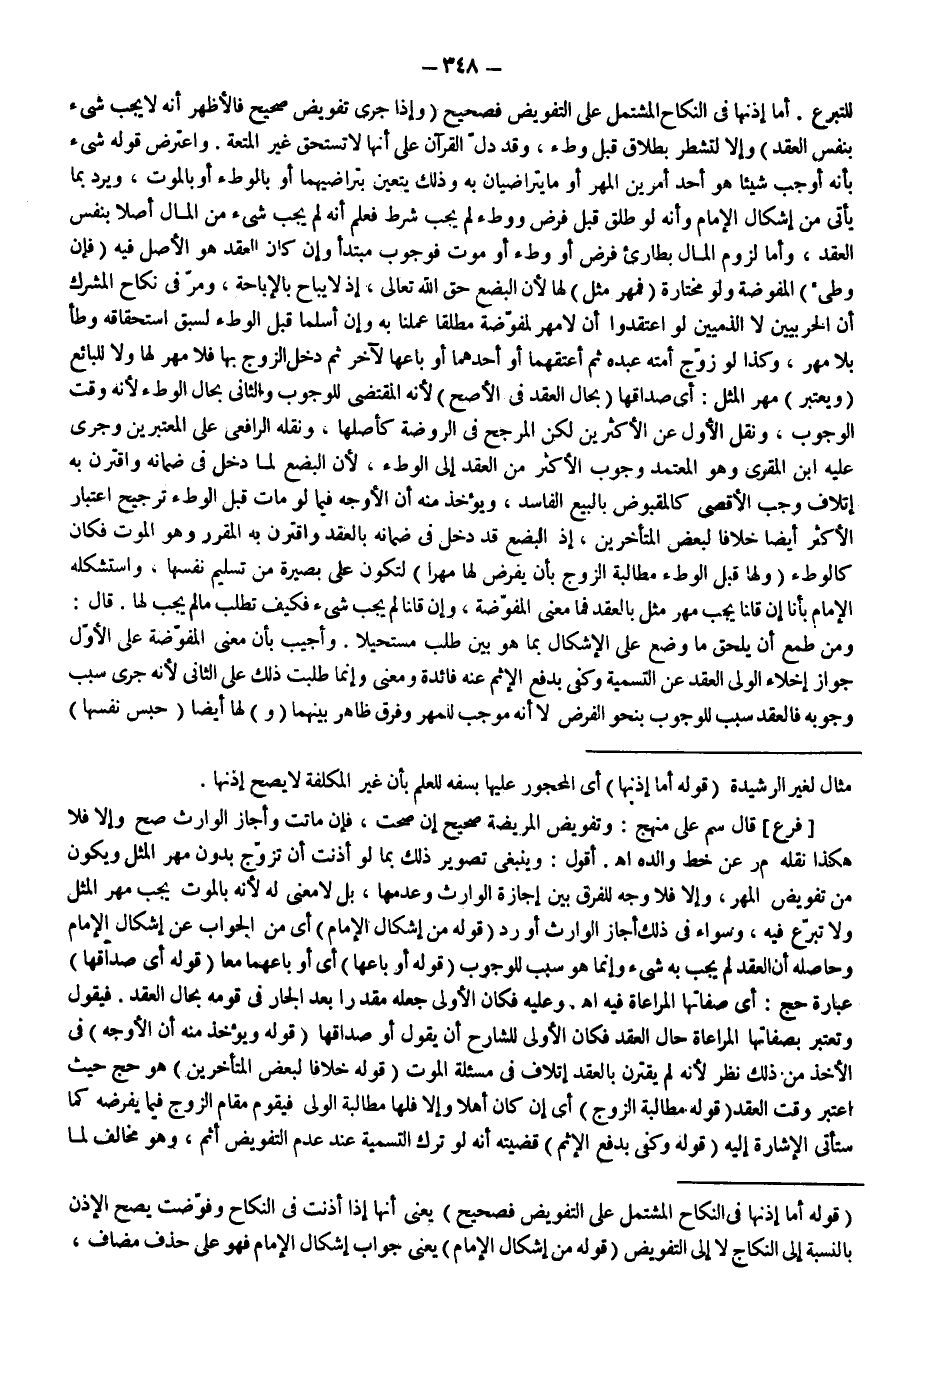 – ٣٤٨ –
للتبرع . أما إذنها فى النكاح المشتمل على التفويض فصحيح ( وإذا جرى تفويض صحيح فالأظهر أنه لايجب شىء
بنفس العقد ) وإلا لتشطر بطلاق قبل وطء ، وقد دلّ القرآن على أنها لاتستحق غير المتعة . واعترض قوله شىء
بأنه أوجب شيئا هو أحد أمرين المهر أو مايتراضيان به وذلك يتعين بتراضيهما أو بالوطء أو بالموت ، ويرد بما
يأتى من إشكال الإمام وأنه لو طلق قبل فرض ووطء لم يجب شرط فعلم أنه لم يجب شىء من المال أصلا بنفس
العقد ، وأما لزوم المال بطارئ فرض أو وطء أو موت فوجوب مبتدأ وإن كان العقد هو الأصل فيه ( فإن
وطىء ) المفوضة ولو مختارة ( فمهر مثل ) لها لأن البضع حق الله تعالى ، إذ لايباح بالإباحة ، ومرّ فى نكاح المشرك
أن الحربيين لا الذميين لو اعتقدوا أن لامهر لمفوّضة مطلقا عملنا به وإن أسلما قبل الوطء لسبق استحقاقه وطأ
بلا مهر ، وكذا لو زوّج أمته عبده ثم أعتقهما أو أحدهما أو باعها لآخر ثم دخل الزوج بها فلا مهر لها ولا للبائع
( ويعتبر ) مهر المثل : أى صداقها ( بحال العقد فى الأصح ) لأنه المقتضى للوجوب والثانى بحال الوطء لأنه وقت
الوجوب ، ونقل الأول عن الأكثرين لكن المرجح فى الروضة كأصلها ، ونقله الرافعى على المعتبرين وجرى
عليه ابن المقرى وهو المعتمد وجوب الأكثر من العقد إلى الوطء ، لأن البضع لما دخل فى ضمانه واقترن به
إتلاف وجب الأقصى كالمقبوض بالبيع الفاسد ، ويؤخذ منه أن الأوجه فيما لو مات قبل الوطء ترجيح اعتبار
الأكثر أيضا خلافا لبعض المتأخرين ، إذ البضع قد دخل فى ضمانه بالعقد واقترن به المقرر وهو الموت فكان
كالوطء ( ولها قبل الوطء مطالبة الزوج بأن يفرض لها مهرا ) لتكون على بصيرة من تسليم نفسها ، واستشكله
الإمام بأنا إن قلنا يجب مهر مثل بالعقد فما معنى المفوّضة ، وإن قلنا لم يجب شىء فكيف تطلب مالم يجب لها . قال :
ومن طمع أن يلحق ما وضع على الإشكال بما هو بين طلب مستحيلا . وأجيب بأن معنى المفوّضة على الأوّل
جواز إخلاء الولى العقد عن التسمية وكفى بدفع الإثم عنه فائدة ومعنى وإنما طلبت ذلك على الثانى لأنه جرى سبب
وجوبه فالعقد سبب للوجوب بنحو الفرض لا أنه موجب للمهر وفرق ظاهر بينهما ( و ) لها أيضا ( حبس نفسها )
مثال لغير الرشيدة ( قوله أما إذنها ) أى المحجور عليها بسفه للعلم بأن غير المكلفة لايصح إذنها .
[ فرع ] قال سم على منهج : وتفويض المريضة صحيح إن صحت ، فإن ماتت وأجاز الوارث صح وإلا فلا
هكذا نقله مر عن خط والده اهـ . أقول : وينبغى تصوير ذلك بما لو أذنت أن تزوّج بدون مهر المثل ويكون
من تفويض المهر ، وإلا فلا وجه للفرق بين إجازة الوارث وعدمها ، بل لامعنى له لأنه بالموت يجب مهر المثل
ولا تبرّع فيه ، وسواء فى ذلك أجاز الوارث أو رد ( قوله من إشكال الإمام ) أى من الجواب عن إشكال الإمام
وحاصله أن العقد لم يجب به شىء وإنما هو سبب للوجوب ( قوله أو باعها ) أى أو باعهما معا ( قوله أى صداقها )
عبارة حج : أى صفاتها المراعاة فيه اهـ . وعليه فكان الأولى جعله مقدرا بعد الجار فى قومه بحال العقد . فيقول
وتعتبر بصفاتها المراعاة حال العقد فكان الأولى للشارح أن يقول أو صداقها ( قوله ويؤخذ منه أن الأوجه ) فى
الأخذ من ذلك نظر لأنه لم يقترن بالعقد إتلاف فى مسئلة الموت ( قوله خلافا لبعض المتأخرين ) هو حج حيث
اعتبر وقت العقد ( قوله مطالبة الزوج ) أى إن كان أهلا وإلا فلها مطالبة الولى فيقوم مقام الزوج فيما يفرضه كما
ستأتى الإشارة إليه ( قوله وكفى بدفع الإثم ) قضيته أنه لو ترك التسمية عند عدم التفويض أثم ، وهو مخالف لما
( قوله أما إذنها فى النكاح المشتمل على التفويض فصحيح ) يعنى أنها إذا أذنت فى النكاح وفوّضت يصح الإذن
بالنسبة إلى النكاح لا إلى التفويض ( قوله من إشكال الإمام ) يعنى جواب إشكال الإمام فهو على حذف مضاف ،